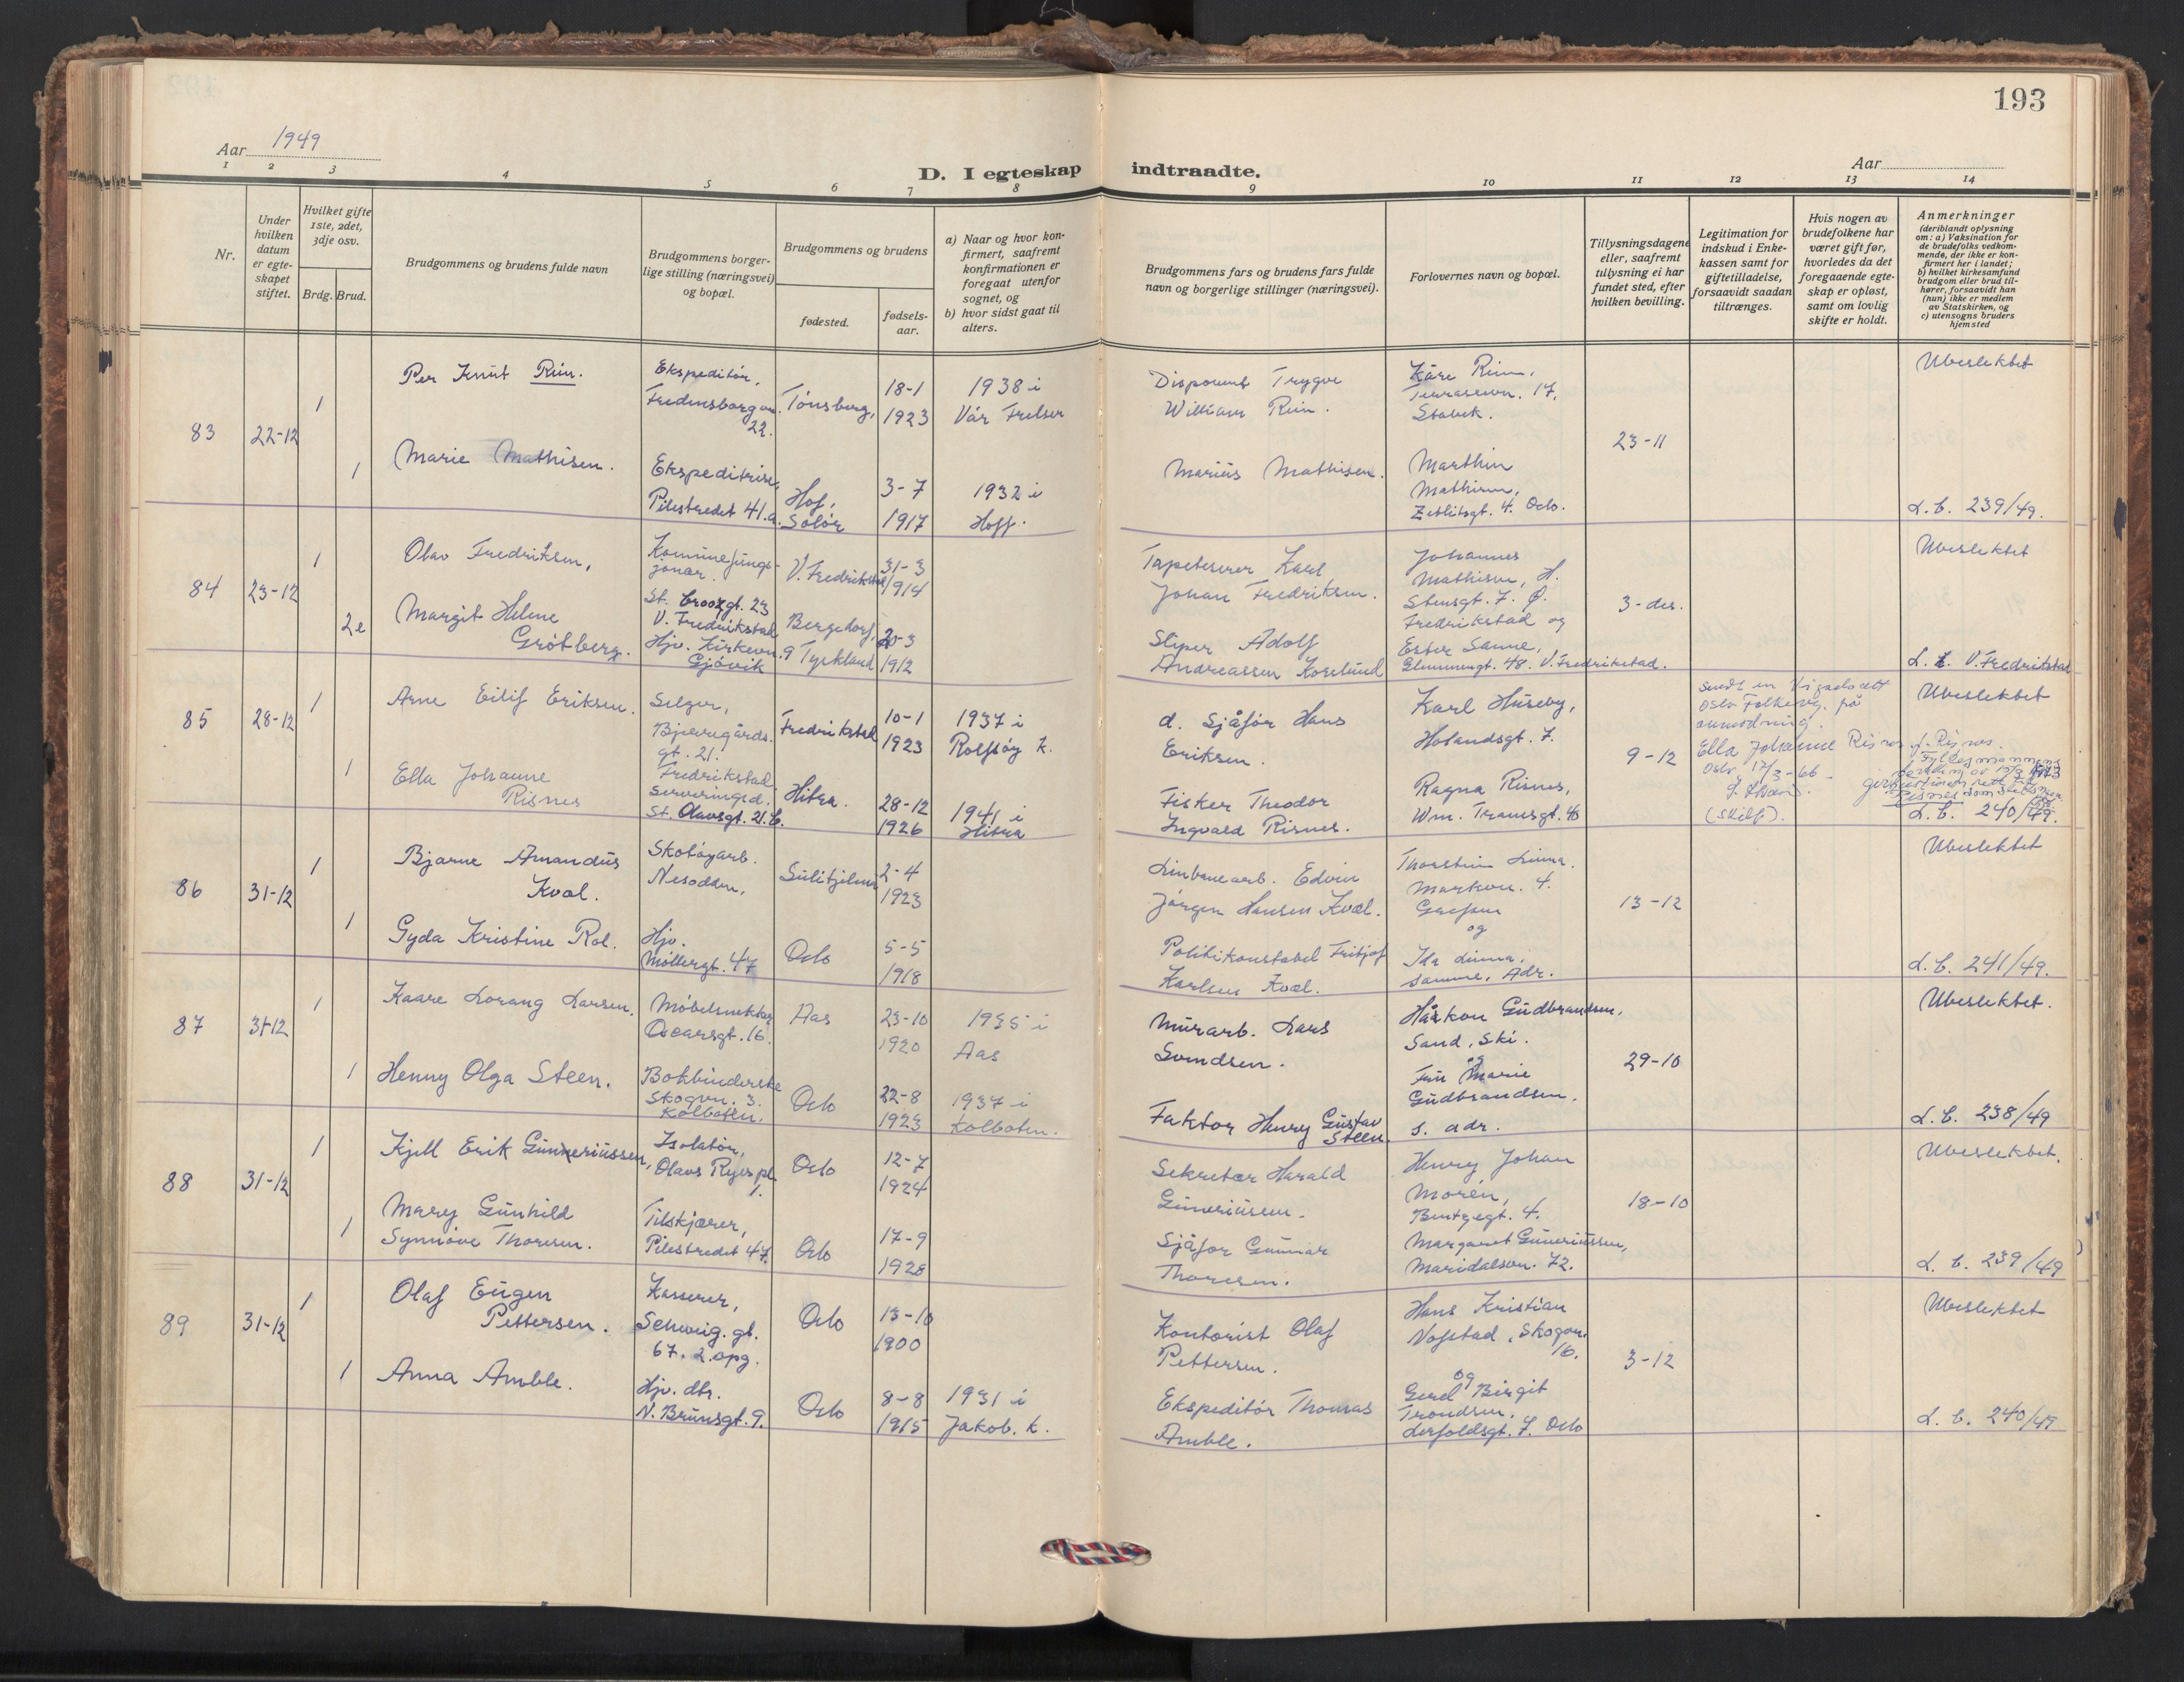 193
Aar 1949
D. I egteskap indtraadte.
Aar
1 2 3 4 5 6 7 8 9 10 11 12 13 14
Nr.
Under
hvilken
datum
er egte-
skapet
stiftet.
Hvilket gifte
1ste, 2det,
3dje osv.
Brdg. Brud.
Brudgommens og brudens fulde navn
Brudgommens borger-
lige stilling (næringsvei)
og bopæl.
Brudgommens og brudens
fødested.
fødsels-
aar.
a) Naar og hvor kon-
firmert, saafremt
konfirmationen er
foregaat utenfor
sognet, og
b) hvor sidst gaat til
alters.
Brudgommens fars og brudens fars fulde
navn og borgerlige stillinger (næringsvei).
Forlovernes navn og bopæl.
Tillysningsdagene
eller, saafremt
tillysning ei har
fundet sted, efter
hvilken bevilling.
Legitimation for
indskud i Enke-
kassen samt for
giftetilladelse,
forsaavidt saadan
tiltrænges.
Hvis nogen av
brudefolkene har
været gift før,
hvorledes da det
foregaaende egte-
skap er opløst,
samt om lovlig
skifte er holdt.
Anmerkninger
(deriblandt oplysning
om: a) Vaksination for
de brudefolks vedkom-
mende, der ikke er kon-
firmert her i landet;
b) hvilket kirkesamfund
brudgom eller brud til-
hører, forsaavidt han
(hun) ikke er medlem
av Statskirken, og
c) utensogns bruders
hjemsted
83
22-12
1
Per Knut Rim.
Ekspeditør,
Fredensborgvn.
22.
Tønsberg,
18-1
1923
1938 i
Vår Frelser
Disponent Trygve
William Rim.
Kåre Rim,
Terrassevn. 17,
Stabek.
23-11
Ubeslektet
1
Marie Mathisen.
Ekspeditrise,
Pilestredet 41.a.
Hof,
Solør
3-7
1917
1932 i
Hoff.
Marius Mathisen.
Marthin
Mathisen,
Zetlitsgt. 4. Oslo.
L.b. 239/49.
84
23-12
1
Olav Fredriksen,
Komunefunge-
jonær.
St. Croozgt. 23
V. Fredrikstad
V. Fredrikstad
31-3
1914
Tapetserer Karl
Johan Fredriksen.
Johannes
Mathisen, H.
Stensgt. 7. Ø.
Fredrikstad og
3-des.
Ubeslektet
2e
Margit Helene
Grøtberg.
Hjv. Kirkevn. 9
Gjøvik
Bergedorf,
Tyskland
20-3
1912
Sliper Adolf
Andreassen Koselund
Ester Sanne,
Glemmengt. 48. V. Fredrikstad.
L. b. V. Fredrikstad
85
28-12
1
Arne Eilif Eriksen.
Selger,
Bjerregårds.
gt. 21.
Fredrikstad
10-1
1923
1937 i
Rolfsøy k.
d. Sjåfør Hans
Eriksen.
Karl Huseby,
Holandsgt. 7.
9-12
Sendt en Vigselsatt
Oslo Folkereg. på
anmodning.
Ella Johanne Risnes f. Risnes.
Oslo 17/3-66
(skilt).
Fylkesmannens
Ubeslektet
1
Ella Johanne
Risnes
Fredrikstad
Serveringsd.
St. Olavsgt. 21.b.
Hitra.
28-12
1926
1941 i
Hitra
Fisker Theodor
Ingvald Risnes.
Ragna Risnes,
Wm. Tranesgt. 46
L.b. 240/49.
86
31-12
1
Bjarne Amandus
Kval.
Skotøyarb.
Nesodden,
Sulitjelma
2-4
1923
Linbanearb. Edvin
Jørgen Hansen Kval.
Thorstein Linna.
Markvn. 4.
Grefsen
og
13-12
Ubeslektet
1
Gyda Kristine Rol.
Hjv.
Møllergt. 47
Oslo
5-5
1918
Politikonstabel Fritjof
Karlsen Kval.
Ida Linna,
samme. Adr.
L.b. 241/49.
87
31-12
1
Kaare Lorang Larsen.
Møbelsnekker
Oscarsgt. 16.
Aas
23-10
1920
1935 i
Aas
Murarb. Lars
Svendsen.
Håkon Gudbrandsen,
Sand, Ski.
og
29-10
Ubeslektet.
1
Henny Olga Steen.
Bokbinderske
Skogvn. 3.
Kolbotn.
Oslo
22-8
1923
1937 i
Kolbotn.
Faktor Henry Gustav
Steen.
Fru Marie
Gudbrandsen.
s. adr.
L.b. 238/49
88
31-12
1
Kjell Erik Gunneriussen,
Isolatør,
Olavs Ryes pl.
1.
Oslo
12-7
1924
Sekretær Harald
Guneriussen.
Henry Johan
Morén,
Bentzegt. 4.
18-10
Ubeslektet.
1
Mary Gunhild
Synnøve Thoresen.
Tilskjærer,
Pilestredet 47.
Oslo
17-9
1928
Sjåfør Gunnar
Thoresen.
Margaret Guneriussen,
Maridalsvn. 72.
L.b. 239/49
89
31-12
1
Olaf Eugen
Pettersen.
Kasserer,
Schweig.gt.
67. 2.opg.
Oslo
13-10
1900
Kontorist Olaf
Pettersen.
Hans Kristian
Nofstad, Skogvn.
16.
og
3-12
Ubeslektet
1
Anna Amble.
Hjv. dtr.
N. Brunsgt. 9.
Oslo
8-8
1915
1931 i
Jakob. k.
Ekspeditør Thomas
Amble.
Gerd Birgit
Trondsen,
Lerfoldsgt. 7. Oslo
L.b. 240/49